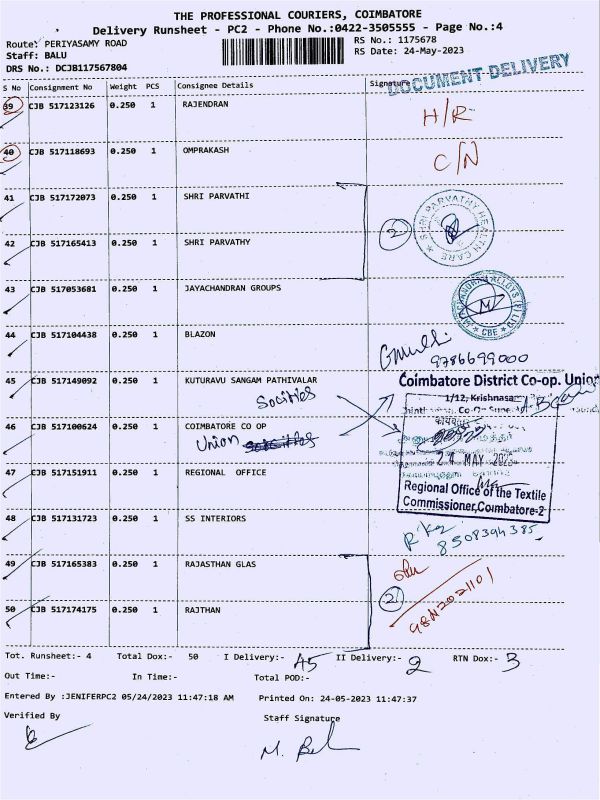 THE PROFESSIONAL COURIERS, COIMBATORE
Delivery Runsheet - PC2 - Phone No.:0422-3505555 - Page No.:4
Route: PERIYASAMY ROAD
RS No.: 1175678
Staff: BALU
RS Date: 24-May-2023
DRS No.: DCJB117567804
DOCUMENT DELIVERY
S No Consignment No Weight PCS Consignee Details Signature
39 CJB 517123126 0.250 1 RAJENDRAN H/R
40 CJB 517118693 0.250 1 OMPRAKASH C/N
41 CJB 517172073 0.250 1 SHRI PARVATHI
SHRI PARVATHY HEALTH CARE
2
42 CJB 517165413 0.250 1 SHRI PARVATHY
43 CJB 517053681 0.250 1 JAYACHANDRAN GROUPS
CBE
44 CJB 517104438 0.250 1 BLAZON
9786699000
45 CJB 517149092 0.250 1 KUTURAVU SANGAM PATHIVALAR
Coimbatore District Co-op. Union
1/12, Krishnasa
Socities
46 CJB 517100624 0.250 1 COIMBATORE CO OP
Union
MAY
47 CJB 517151911 0.250 1 REGIONAL OFFICE
Regional Office of the Textile
Commissioner,Coimbatore-2
48 CJB 517131723 0.250 1 SS INTERIORS
8508394385
49 CJB 517165383 0.250 1 RAJASTHAN GLAS
2
50 CJB 517174175 0.250 1 RAJTHAN
Tot. Runsheet:- 4 Total Dox:- 50 I Delivery:- 45 II Delivery:- 2 RTN Dox:- 3
Out Time:- In Time:- Total POD:-
Entered By :JENIFERPC2 05/24/2023 11:47:18 AM Printed On: 24-05-2023 11:47:37
Verified By Staff Signature